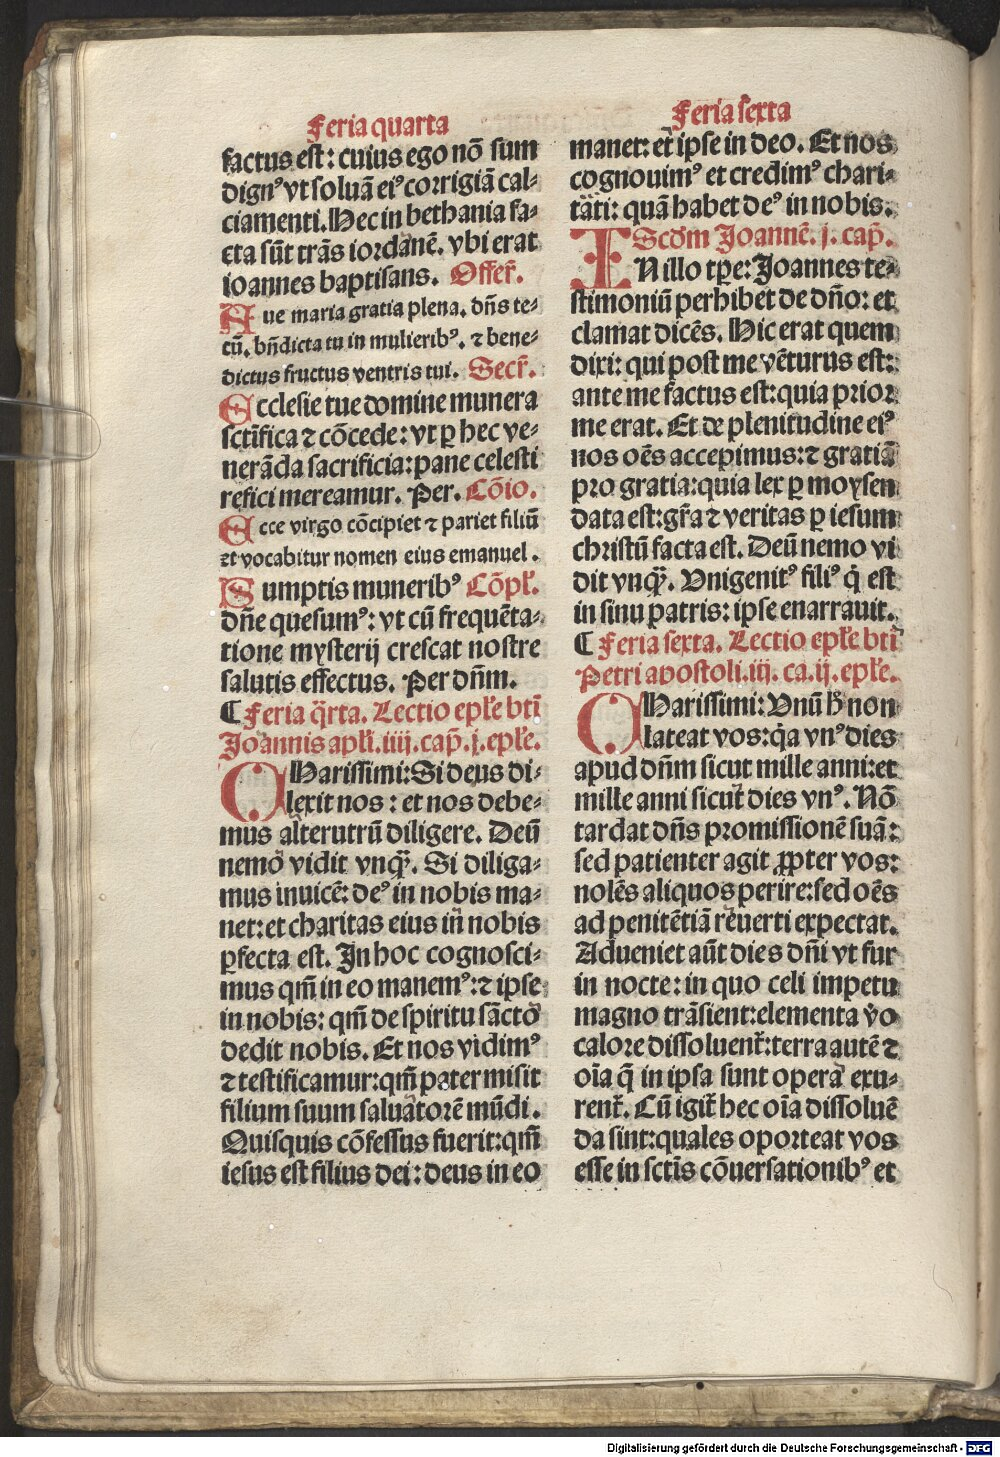 Feria quarta
factus est: cuius ego nō sum
dignꝰ vt soluā eiꝰ corrigiā cal-
ciamenti. Hec in bethania fa-
cta sūt trās iordanē. vbi erat
ioannes baptisans. Offer̄.
Aue maria gratia plena. dn̄s te-
cū. bn̄dicta tu in mulieribꝰ. ⁊ bene-
dictus fructus ventris tui. Secr̄.
Ecclesie tue domine munera
sctīfica ⁊ cōcede: vt ꝑ hec ve-
nerāda sacrificia: pane celesti
refici mereamur. Per. Cōio.
Ecce virgo cōcipiet ⁊ pariet filiū
et vocabitur nomen eius emanuel.
Sumptis muneribꝰ Cōpl̄.
dn̄e quesumꝰ: vt cū frequēta-
tione mysterij crescat nostre
salutis effectus. Per dn̄m.
¶ Feria q̄rta. Lectio epl̄e bt̄i
Joannis apl̄i. iiij. cap̄. j. epl̄e.
CHarissimi: Si deus di-
lexit nos: et nos debe-
mus alterutrū diligere. Deū
nemo vidit vnqꝫ̄. Si diliga-
mus inuicē: deꝰ in nobis ma-
net: et charitas eius in nobis
ꝑfecta est. In hoc cognosci-
mus qm̄ in eo manemꝰ: ⁊ ipse
in nobis: qm̄ de spiritu sācto
dedit nobis. Et nos vidimꝰ
⁊ testificamur: qm̄ pater misit
filium suum saluatorē mūdi.
Quisquis cōfessus fuerit: qm̄
iesus est filius dei: deus in eo
Feria sexta
manet: et ipse in deo. Et nos
cognouimꝰ et credimꝰ chari-
tati: quā habet deꝰ in nobis.
Scdm Joannē. j. cap̄.
IN illo tp̄e: Joannes te-
stimoniū perhibet de dn̄o: et
clamat dicēs. Hic erat quem
dixi: qui post me vēturus est:
ante me factus est: quia prior
me erat. Et de plenitudine eiꝰ
nos oēs accepimus: ⁊ gratiā
pro gratia: quia lex ꝑ moysen
data est: gr̄a ⁊ veritas ꝑ iesum
christū facta est. Deū nemo vi
dit vnqꝫ̄. Vnigenitꝰ filiꝰ q̇ est
in sinu patris: ipse enarrauit.
¶ Feria sexta. Lectio epl̄e bt̄i
Petri apostoli. iij. ca. ij. epl̄e.
CHarissimi: Vnū h̄ non
lateat vos: q̇a vnꝰ dies
apud dn̄m sicut mille anni: et
mille anni sicut dies vnꝰ. Nō
tardat dn̄s promissionē suā:
sed patienter agit ꝓpter vos:
nolēs aliquos perire: sed oēs
ad penitētiā reuerti expectat.
Adueniet aūt dies dn̄i vt fur
in nocte: in quo celi impetu
magno trāsient: elementa v̊o
calore dissoluent̄: terra autē ⁊
oīa q̄ in ipsa sunt opera exu-
rent̄. Cū igit̄ hec oīa dissoluē
da sint: quales oporteat vos
esse in sctīs cōuersationibꝰ et
Digitalisierung gefördert durch die Deutsche Forschungsgemeinschaft - DFG